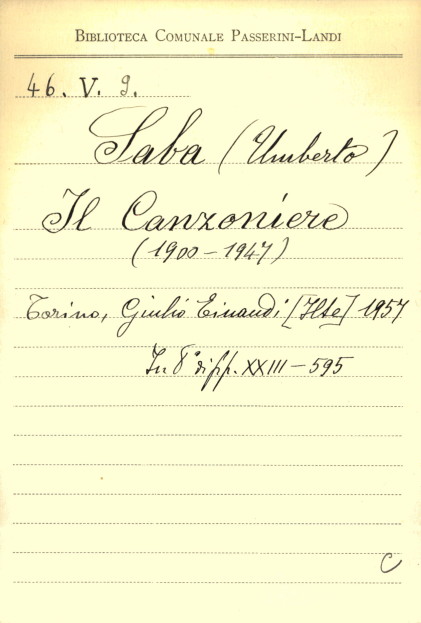 BIBLIOTECA COMUNALE PASSERINI-LANDI
46. V. 9.
Saba (Umberto)
Il Canzoniere
(1900-1947)
Torino, Giulio Einaudi [Ilte] 1957
In 8° di pp. XXIII-595
C